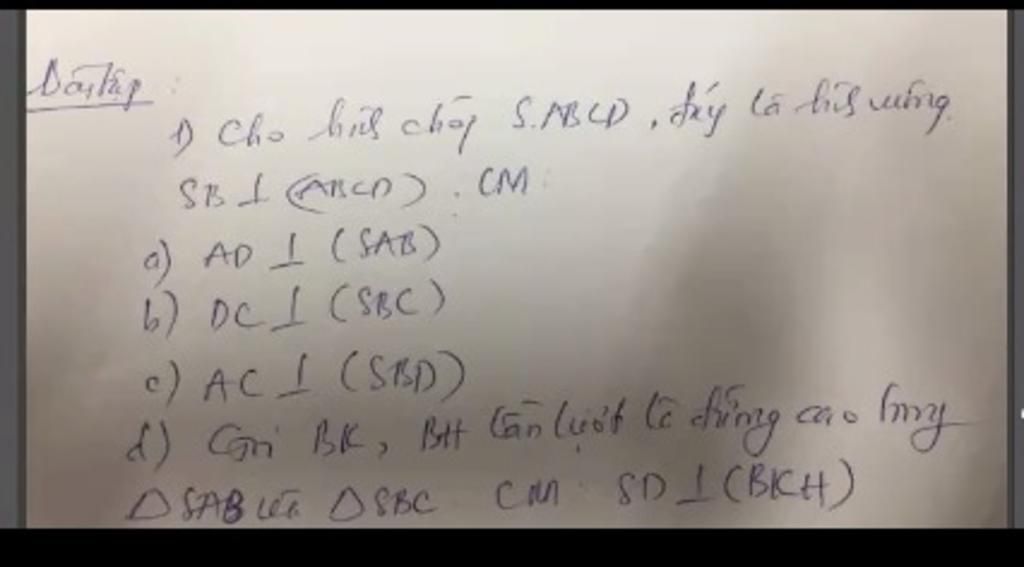 Bài tập :
1) Cho hình chóp S.ABCD, đáy là hình vuông.
SB ⊥ (ABCD). CM:
a) AD ⊥ (SAB)
b) DC ⊥ (SBC)
c) AC ⊥ (SBD)
d) Gọi BK, BH lần lượt là đường cao trong
△SAB và △SBC CM SD ⊥ (BKH)